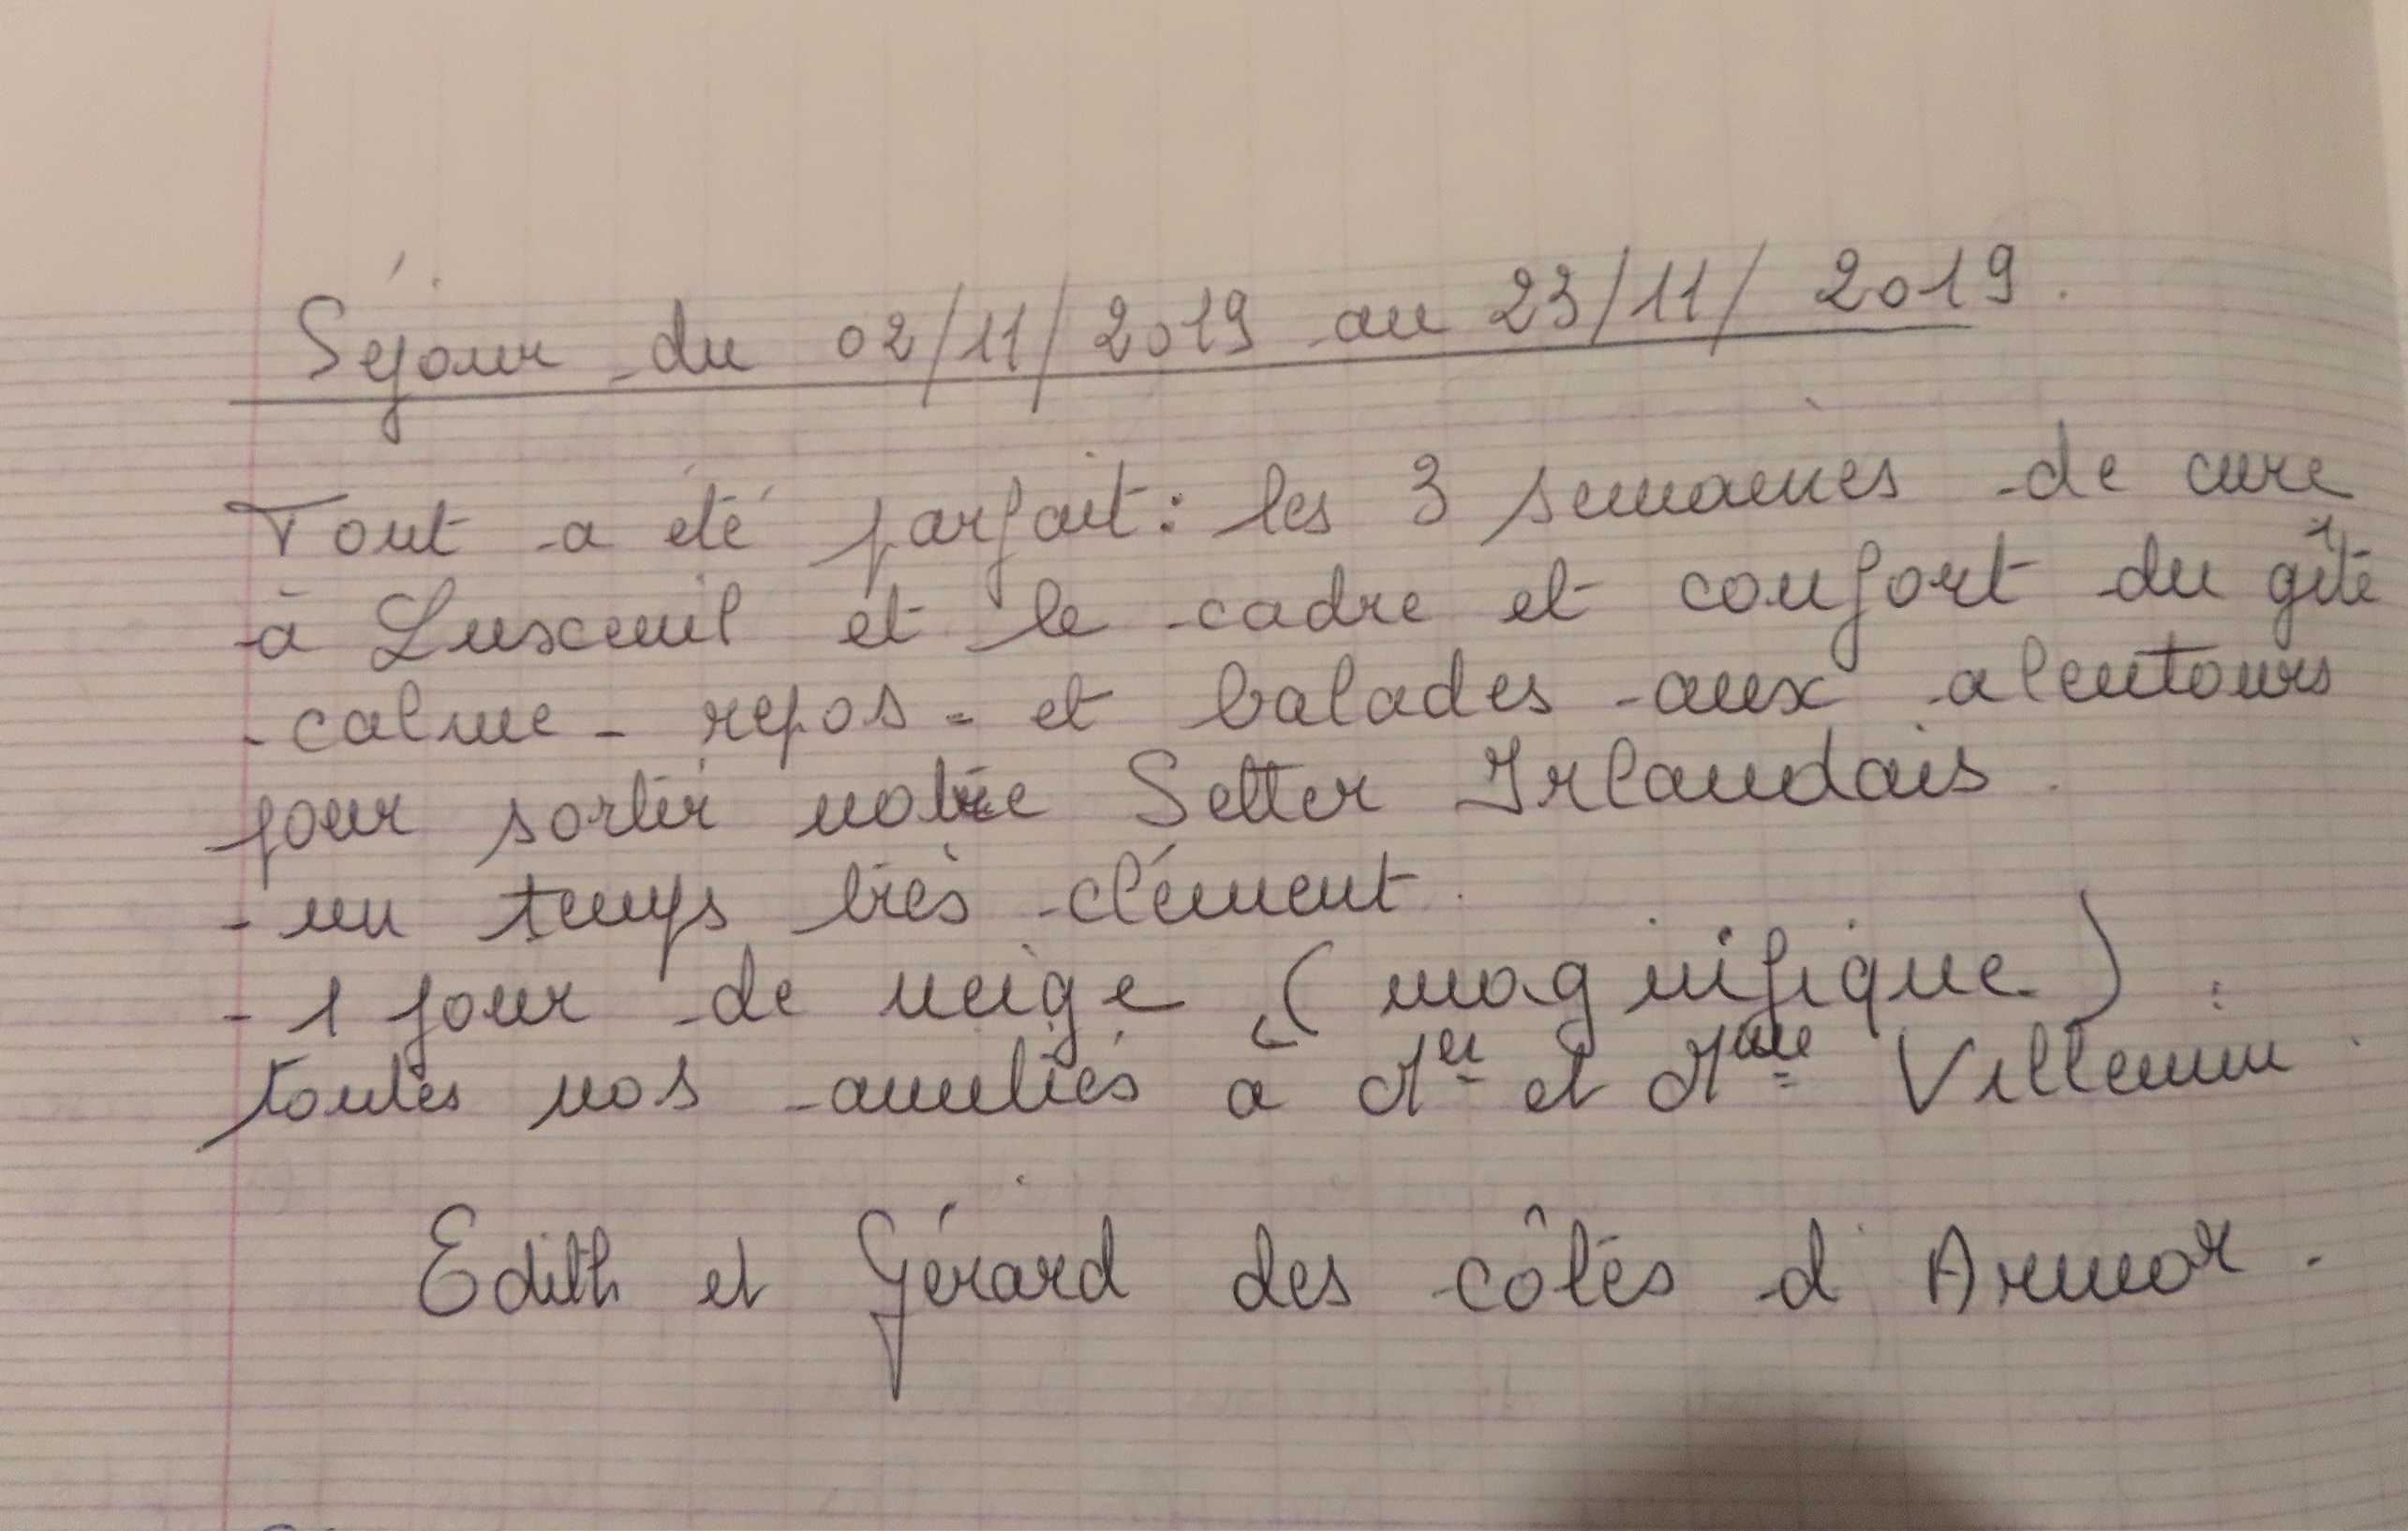 Séjour du 02/11/2019 au 23/11/2019.
Tout a été parfait : les 3 semaines de cure
à Luxeuil et le cadre et confort du gîte
- calme - repos - et balades aux alentours
pour sortir notre Setter Irlandais.
- un temps très clément.
- 1 jour de neige (magnifique) :
toutes nos amitiés à Mer et Mme Villemin.
Edith et Gérard des côtés d'Armor.